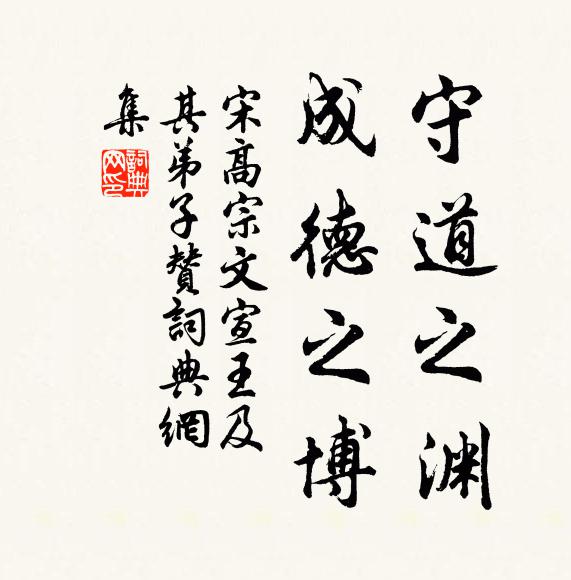 守道之渊
成德之博
宋高宗文宣王及
其弟子赞詞典網
集
詞典
网印